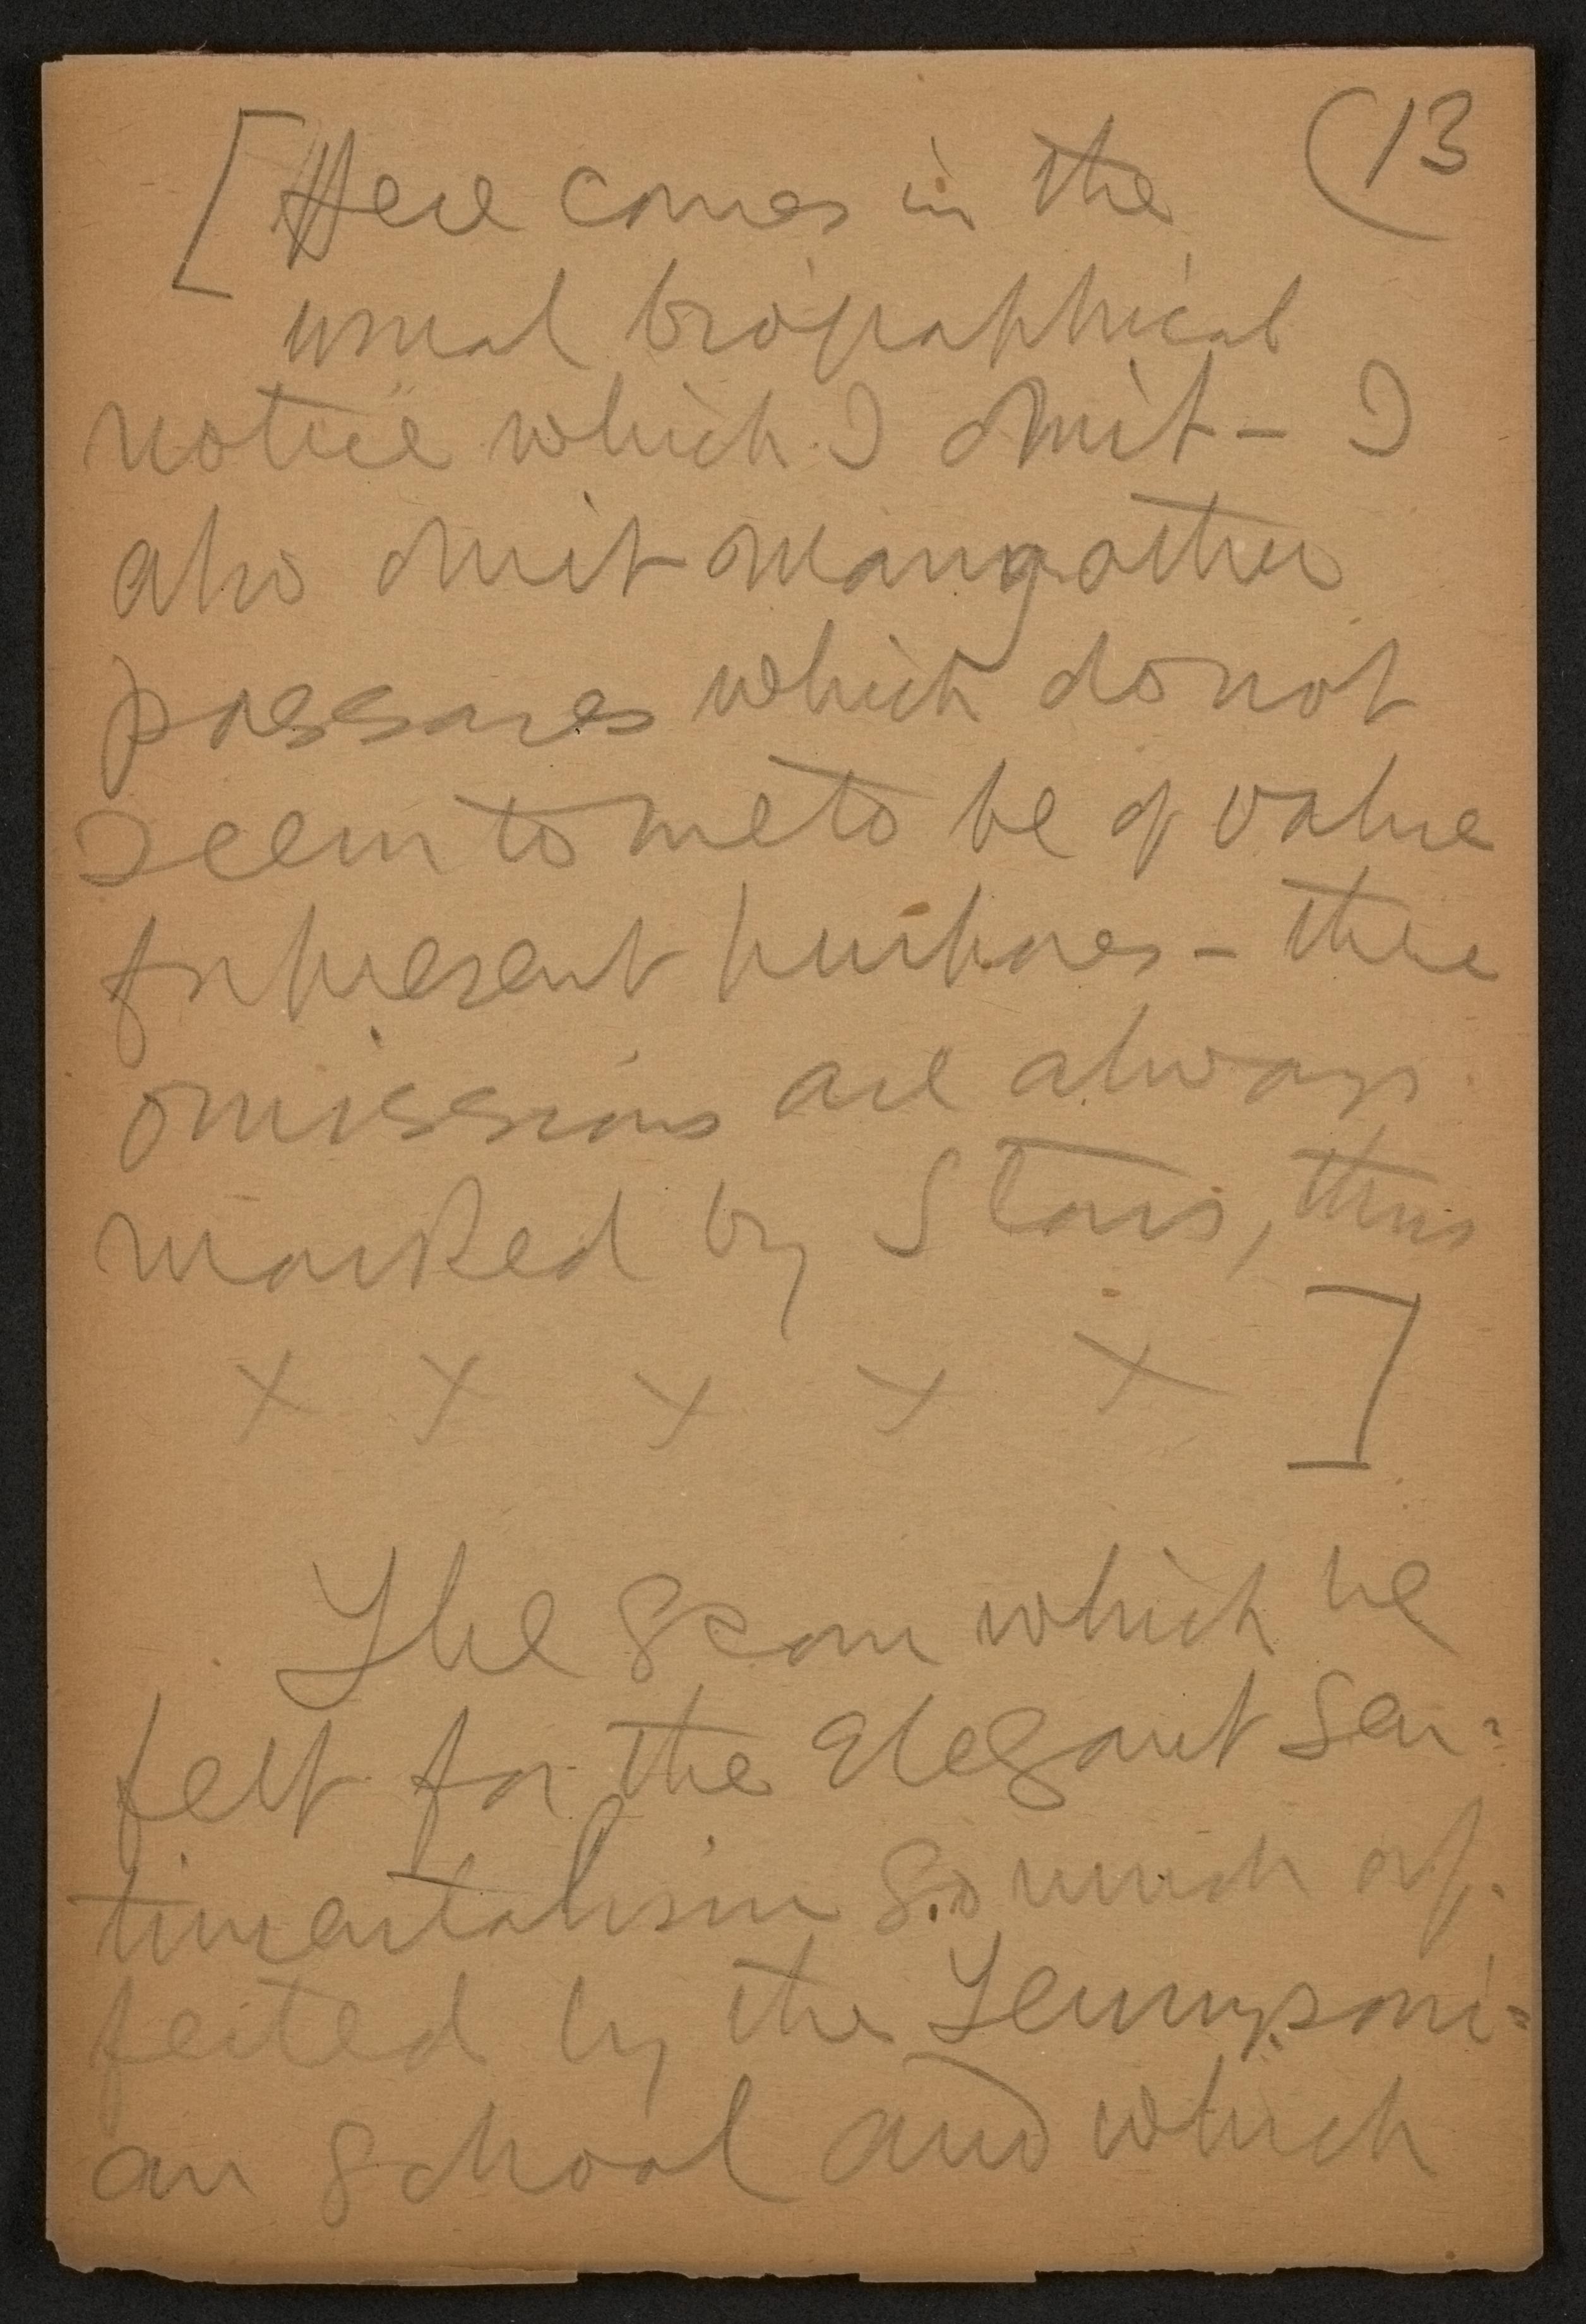 (13
[Here comes in the
usual biographical
notice which I omit — I
also omit many other
passages which do not
seem to me to be of value
for present purposes — these
omissions are always
marked by stars, thus
x x x x x ]
The scorn which he
felt for the elegant sen-
timentalism so much af-
fected by the Tennysoni-
an school and which